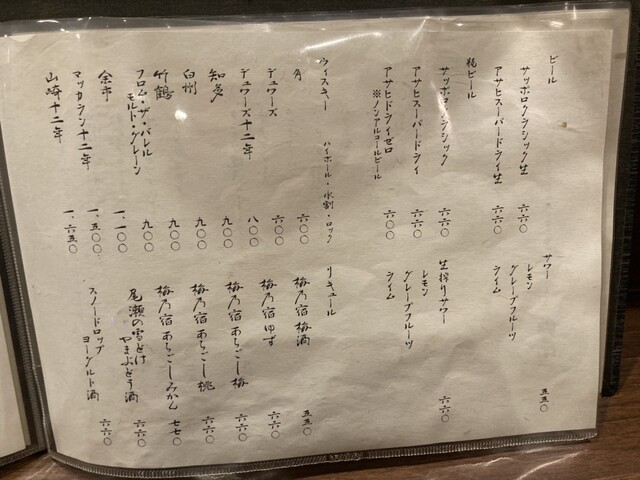 ビール
サッポロクラシック生 六六〇
アサヒスーパードライ生 六六〇
瓶ビール
サッポロクラシック 六六〇
アサヒスーパードライ 六六〇
アサヒドライゼロ 六〇〇
※ノンアルコールビール
ウィスキー ハイボール・水割・ロック
角 六〇〇
デュワーズ 六〇〇
デュワーズ十二年 八〇〇
知多 九〇〇
白州 九〇〇
竹鶴 九〇〇
フロム・ザ・バレル 九〇〇
モルト・グレーン
余市 一、一〇〇
マッカラン十二年 一、五〇〇
山崎十二年 一、六五〇
サワー
レモン 五五〇
グレープフルーツ
ライム
生搾りサワー
レモン 六六〇
グレープフルーツ
ライム
リキュール
梅乃宿梅酒 五五〇
梅乃宿ゆず 六六〇
梅乃宿あらごし梅 六六〇
梅乃宿あらごし桃 六六〇
梅乃宿あらごしみかん 七七〇
尾瀬の雪どけ
やまぶどう酒 六六〇
スノードロップ
ヨーグルト酒 六六〇